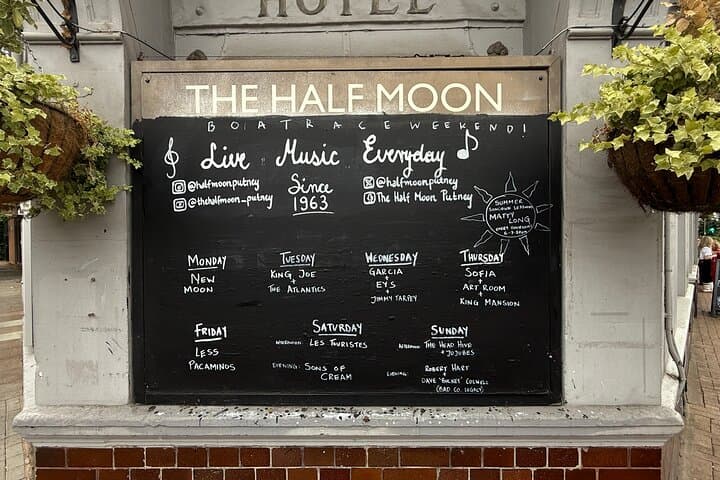 HOTEL
THE HALF MOON
BOATRACE WEEKEND!
Live Music Everyday
@halfmoonputney
@thehalfmoon_putney
Since
1963
@halfmoonputney
The Half Moon Putney
SUMMER
MATTY
LONG
MONDAY
NEW
MOON
TUESDAY
KING JOE
+
THE ATLANTICS
WEDNESDAY
GARCIA
+
EYS
+
JIMMY TARPEY
THURSDAY
SOFIA
+
ART ROOM
+
KING MANSION
FRIDAY
LESS
PACAMINOS
SATURDAY
AFTERNOON: LES TOURISTES
EVENING: SONS OF
CREAM
SUNDAY
AFTERNOON: THE HEAD HIVO
+ JOJUBES
EVENING: ROBERT HART
+
DAVE "BUCKET" COLWELL
(BAD CO. LEGACY)